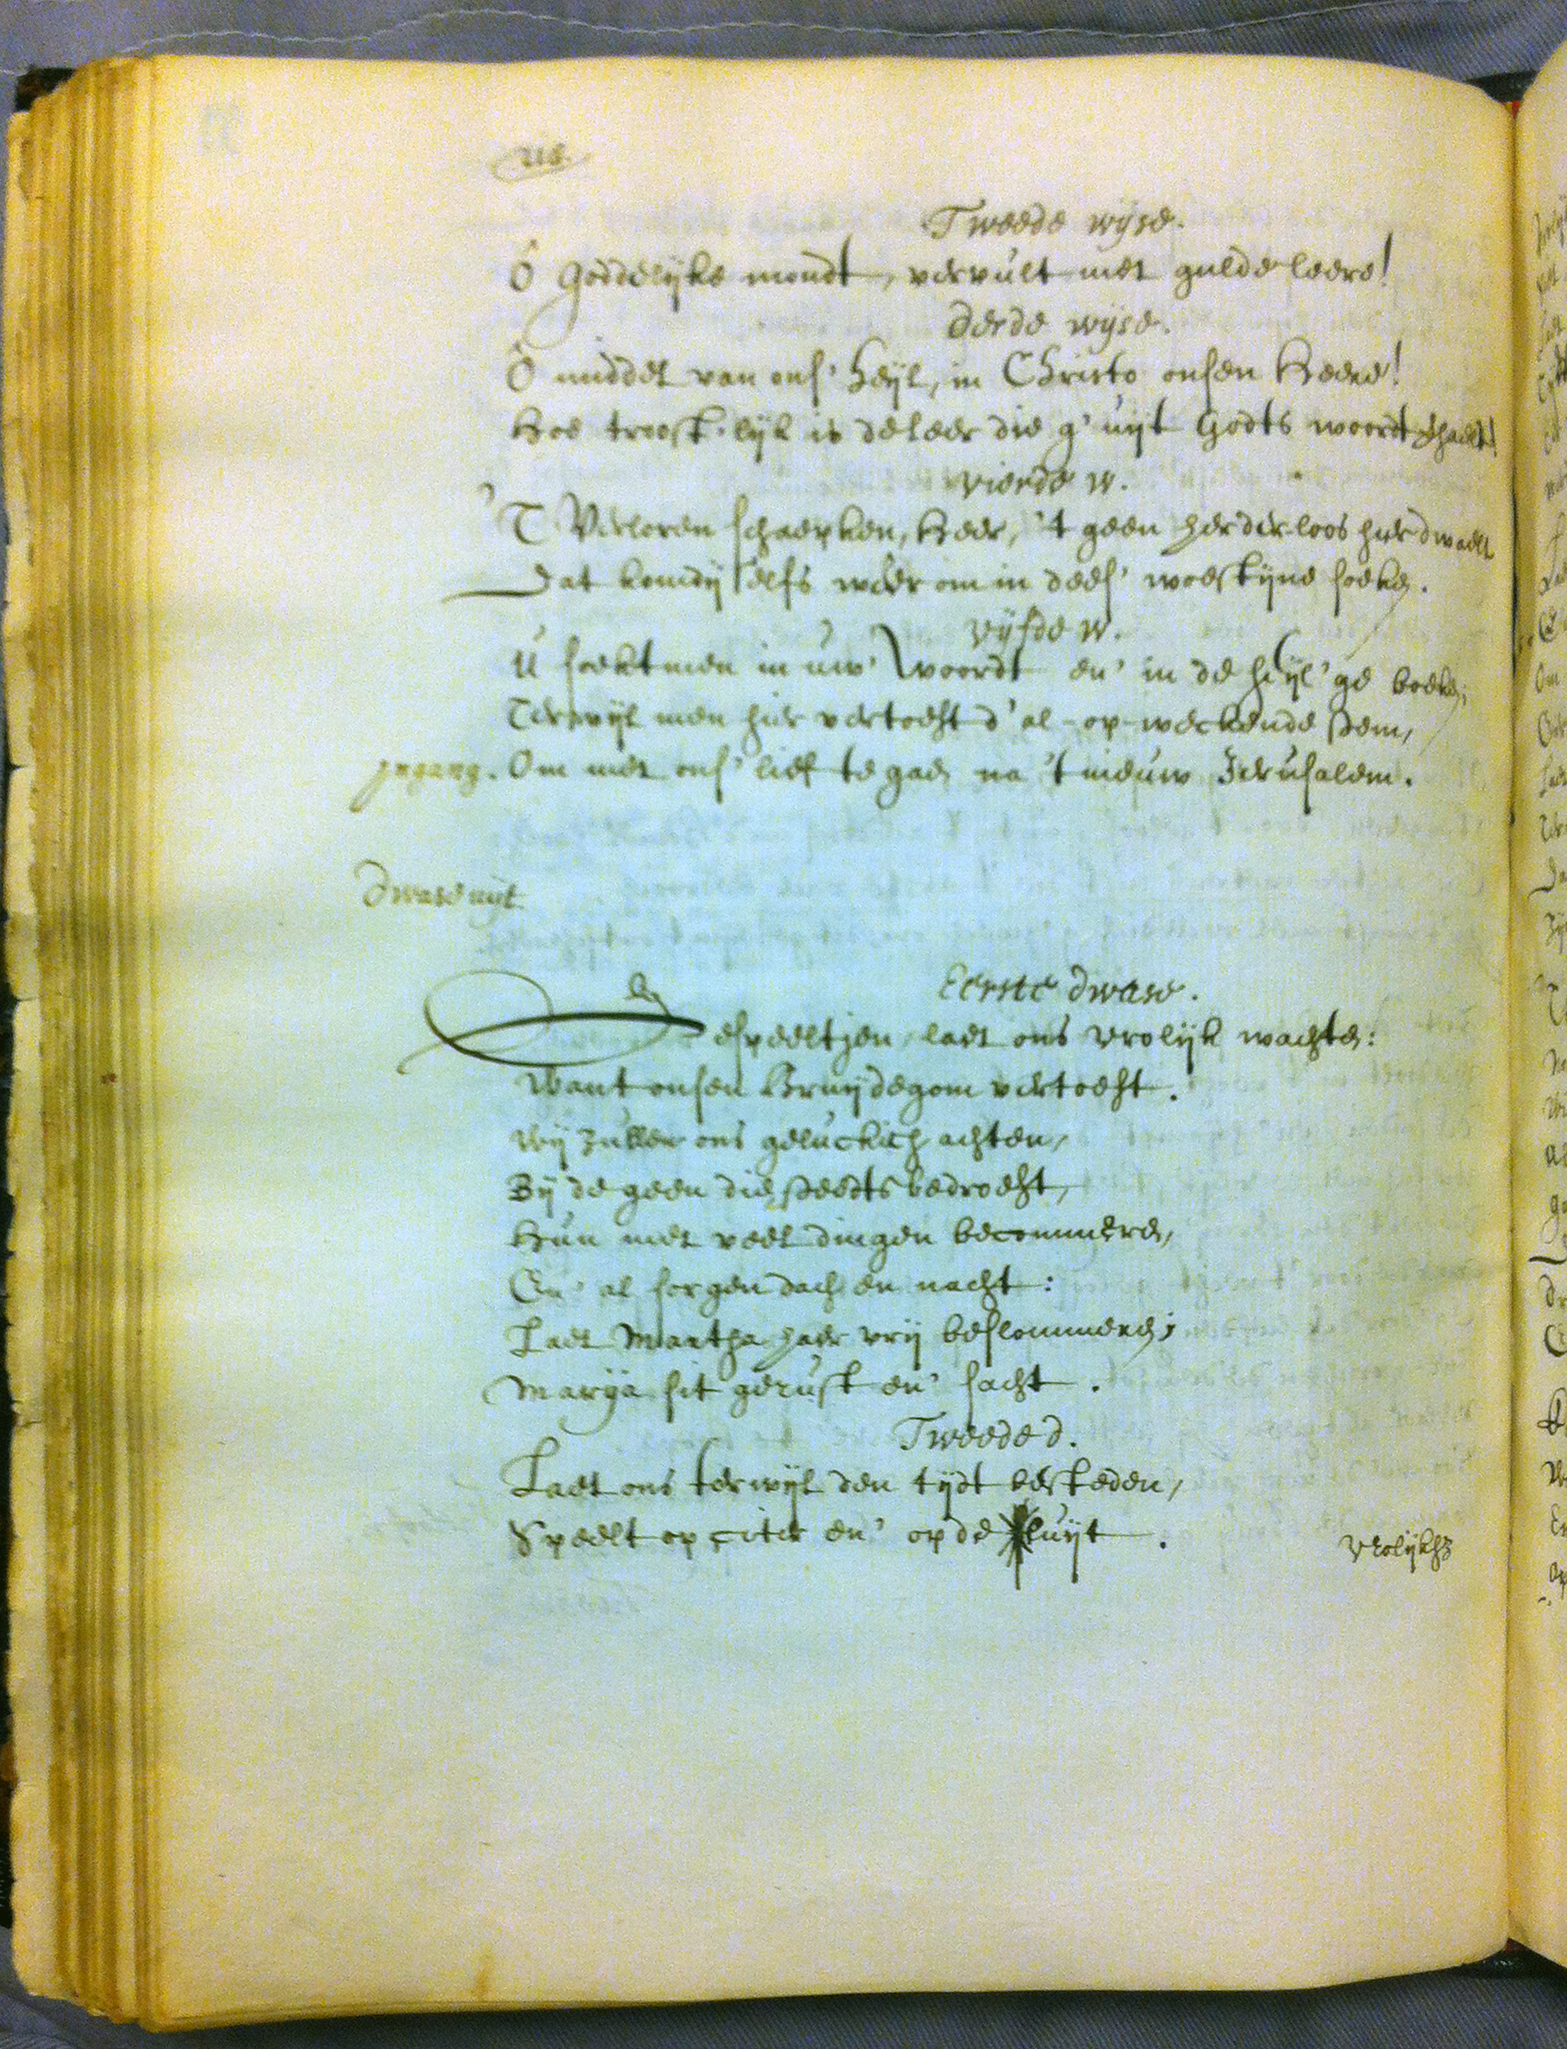 Tweede wijse.
Ô goddelijke mondt, vervult met gulde leere!
derde wijse.
Ô middel van ons' heijl, in Christo onsen Heere!
Hoe troost-lijk is de leer die g' uijt Godts woordt
vierde w.
'T Verloren schaepken, Heer, 't geen herderloos hier dwaelt
Dat komdij selfs weer om in dees' woestijne soeken.
vijfde w.
U soekt men in uw' woordt en' in de heijl'ge boeken;
Terwijl men hier vertoeft d'al-op-weckende stem,
Ingang. Om met ons' lief te gaen na 't nieuw Jerusalem.
Dwase uijt
Eerste dwase.
Gespeeltjen, laet ons vrolijk wachten:
Want onsen Bruijdegom vertoeft.
Wij zullen ons geluckich achten,
Bij de geen die steedts bedroeft,
Hun met veel dingen becommeren,
En' al sorgen dach en nacht:
Laet Martha haer vrij beslommeren;
Marija sit gerust en' sacht.
Tweede d.
Laet ons terwijl den tijdt besteden,
Speelt op citer en' op de luijt.